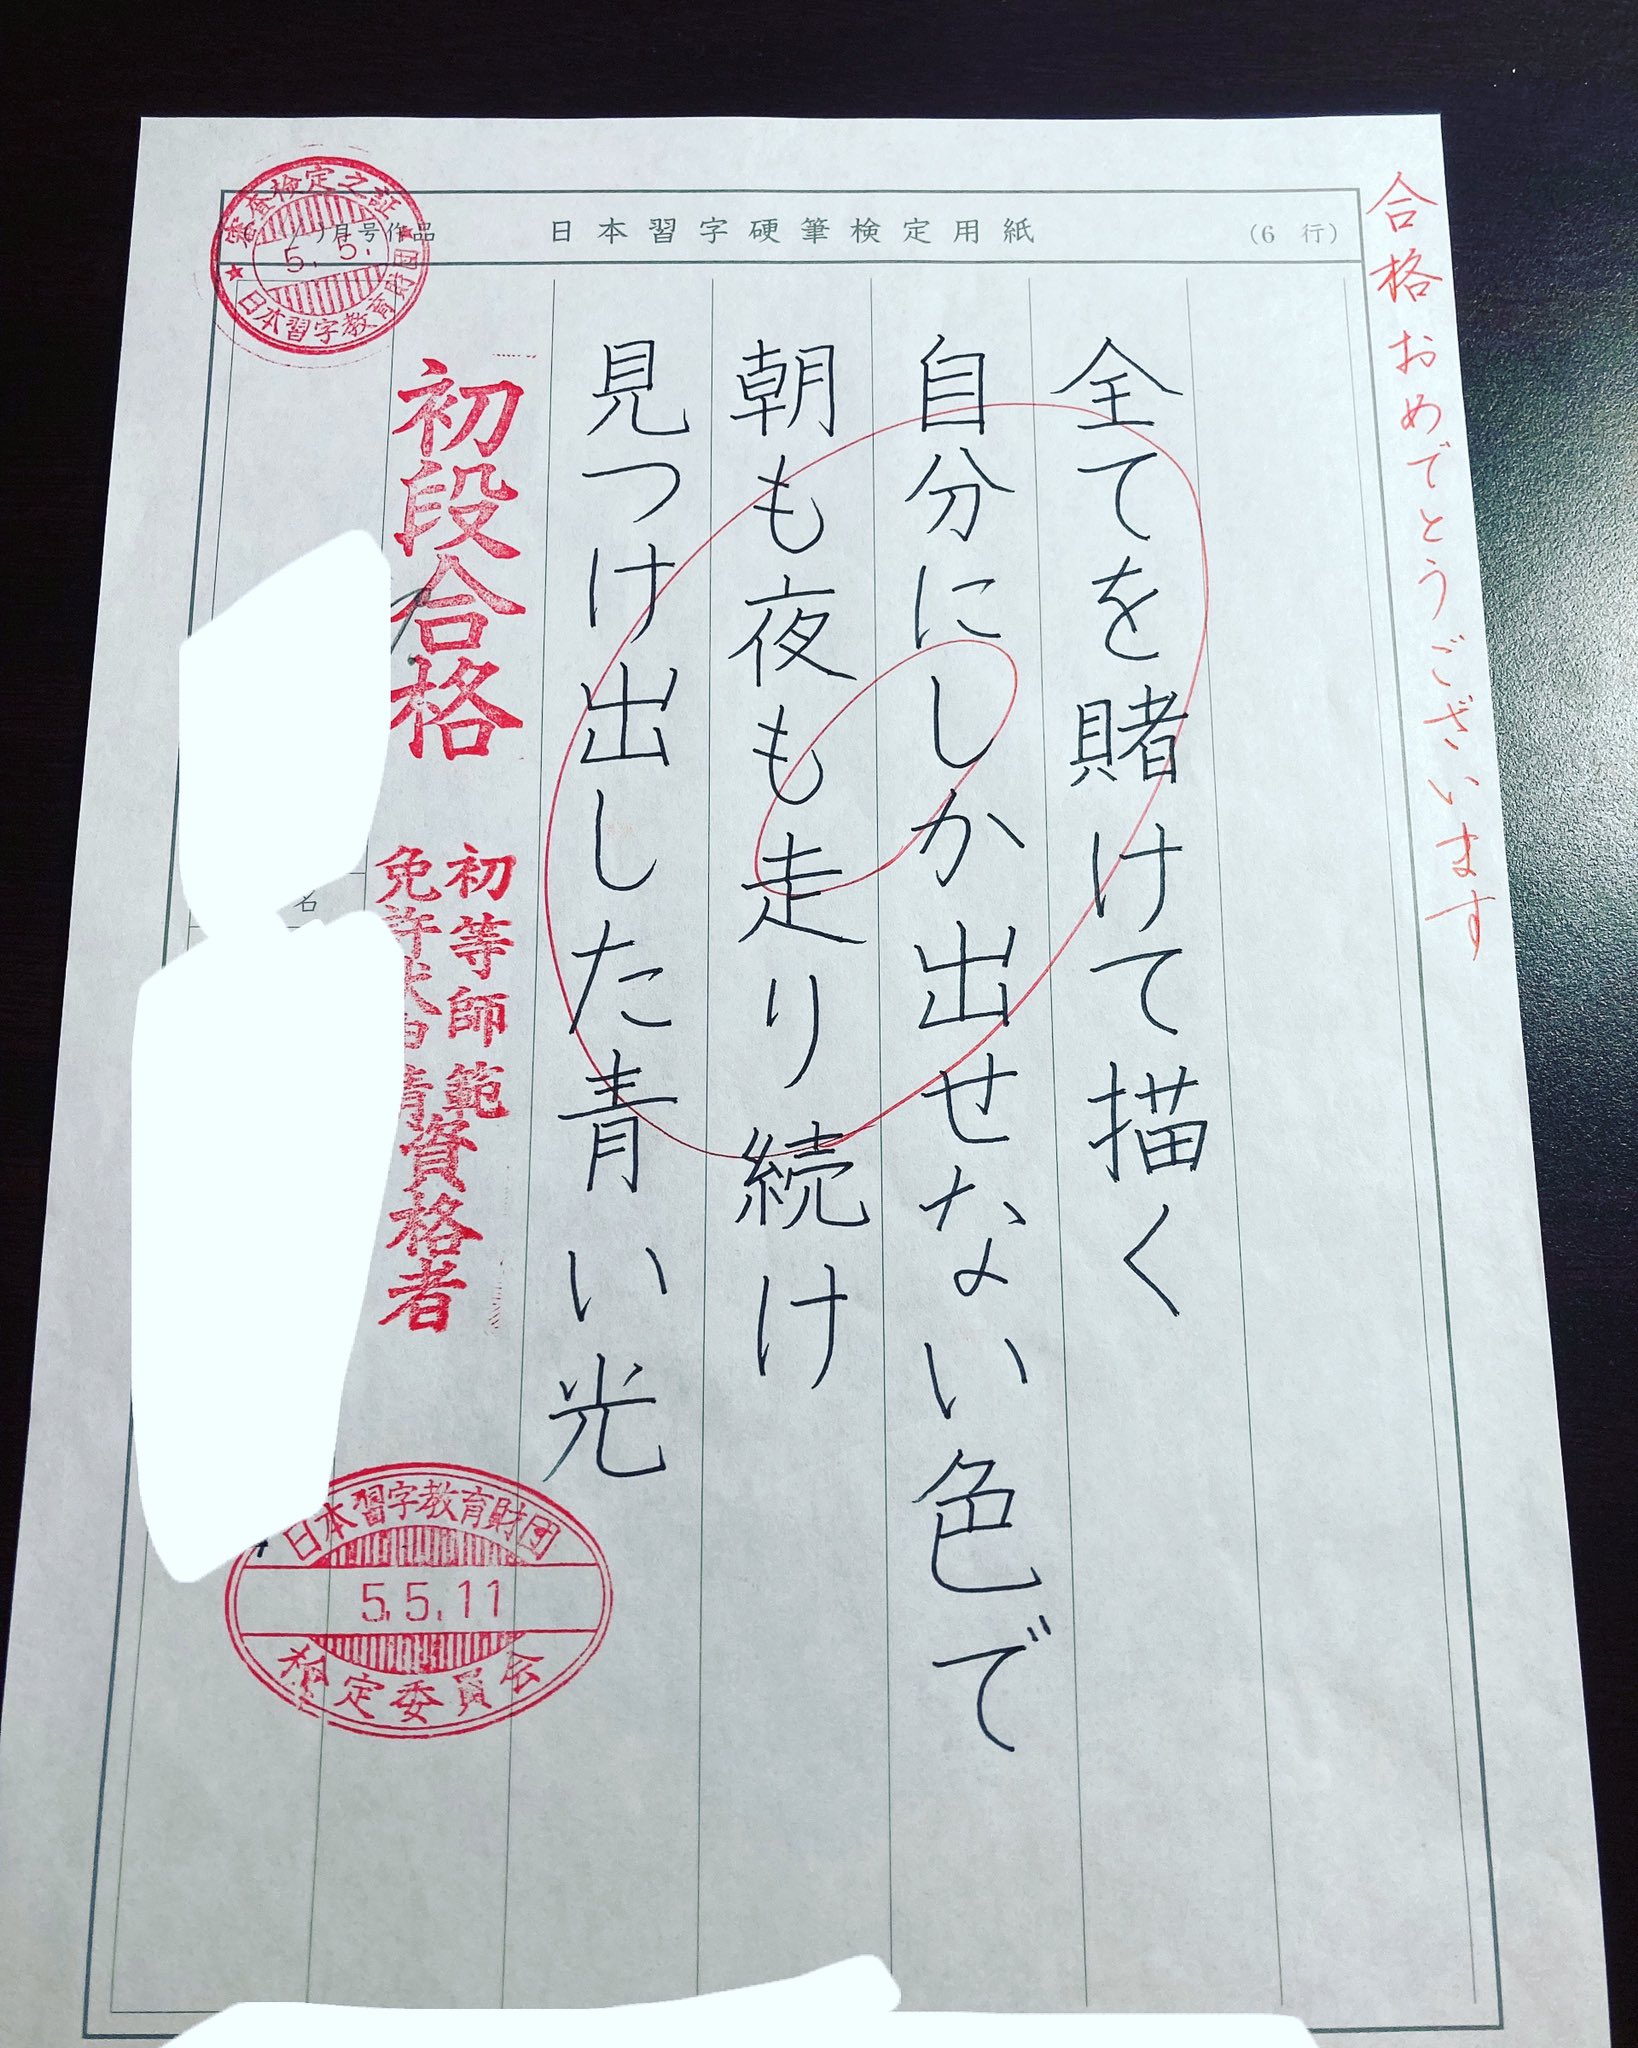 合格おめでとうございます
日本習字硬筆検定用紙
(6 行)
月号作品
全てを賭けて描く
自分にしか出せない色で
朝も夜も走り続け
見つけ出した青い光
初段合格
初等師範
免許状申請
資格者
名
審査検定之証
5.5.
日本習字教育財団
日本習字教育財団
5.5.11
検定委員会